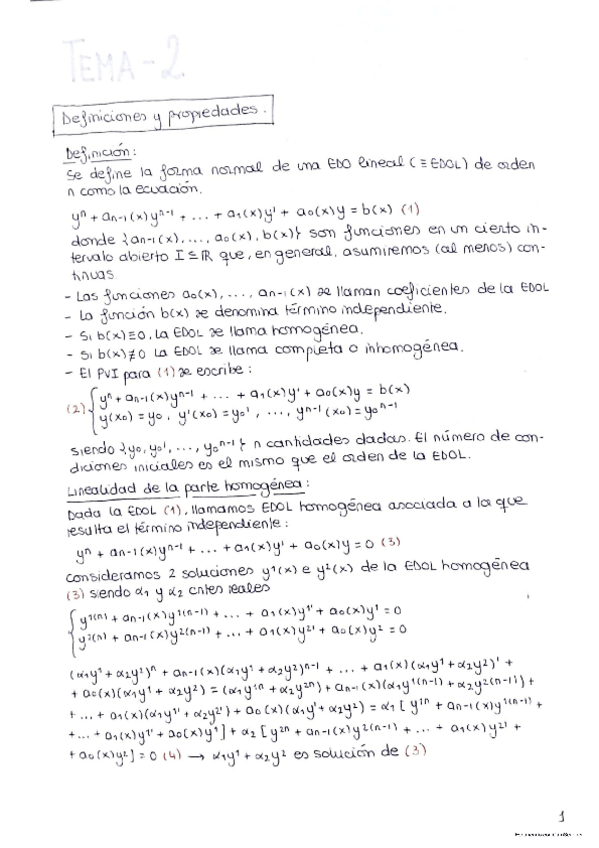 TEMA-2
Definiciones y propiedades.
Definición:
Se define la forma normal de una EDO lineal (≡EDOL) de orden
n como la ecuación.
yⁿ + an-1(x)yⁿ⁻¹ + ... + a1(x)y' + a0(x)y = b(x) (1)
donde {an-1(x), ..., a0(x), b(x)} son funciones en un cierto in-
tervalo abierto I ⊆ ℝ que, en general, asumiremos (al menos) con-
tinuas
- Las funciones a0(x), ..., an-1(x) se llaman coeficientes de la EDOL
- La función b(x) se denomina término independiente.
- Si b(x)≡0, la EDOL se llama homogénea.
- Si b(x)≢0 la EDOL se llama completa o inhomogénea.
- El PVI para (1) se escribe:
(2) { yⁿ + an-1(x)yⁿ⁻¹ + ... + a1(x)y' + a0(x)y = b(x)
y(x0) = y0, y'(x0) = y0', ..., yⁿ⁻¹(x0) = y0ⁿ⁻¹
siendo {y0, y0', ..., y0ⁿ⁻¹} n cantidades dadas. El número de con-
diciones iniciales es el mismo que el orden de la EDOL.
Linealidad de la parte homogénea:
Dada la EDOL (1), llamamos EDOL homogénea asociada a la que
resulta el término independiente:
yⁿ + an-1(x)yⁿ⁻¹ + ... + a1(x)y' + a0(x)y = 0 (3)
Consideramos 2 soluciones y¹(x) e y²(x) de la EDOL homogénea
(3) siendo α1 y α2 cntes reales
{ y¹⁽ⁿ⁾ + an-1(x)y¹⁽ⁿ⁻¹⁾ + ... + a1(x)y¹' + a0(x)y¹ = 0
y²⁽ⁿ⁾ + an-1(x)y²⁽ⁿ⁻¹⁾ + ... + a1(x)y²' + a0(x)y² = 0
(α1y¹ + α2y²)ⁿ + an-1(x)(α1y¹ + α2y²)ⁿ⁻¹ + ... + a1(x)(α1y¹ + α2y²)' +
+ a0(x)(α1y¹ + α2y²) = (α1y¹ⁿ + α2y²ⁿ) + an-1(x)(α1y¹⁽ⁿ⁻¹⁾ + α2y²⁽ⁿ⁻¹⁾) +
+ ... + a1(x)(α1y¹' + α2y²') + a0(x)(α1y¹ + α2y²) = α1[y¹ⁿ + an-1(x)y¹⁽ⁿ⁻¹⁾ +
+ ... + a1(x)y¹' + a0(x)y¹] + α2[y²ⁿ + an-1(x)y²⁽ⁿ⁻¹⁾ + ... + a1(x)y²' +
+ a0(x)y²] = 0 (4) → α1y¹ + α2y² es solución de (3)
1